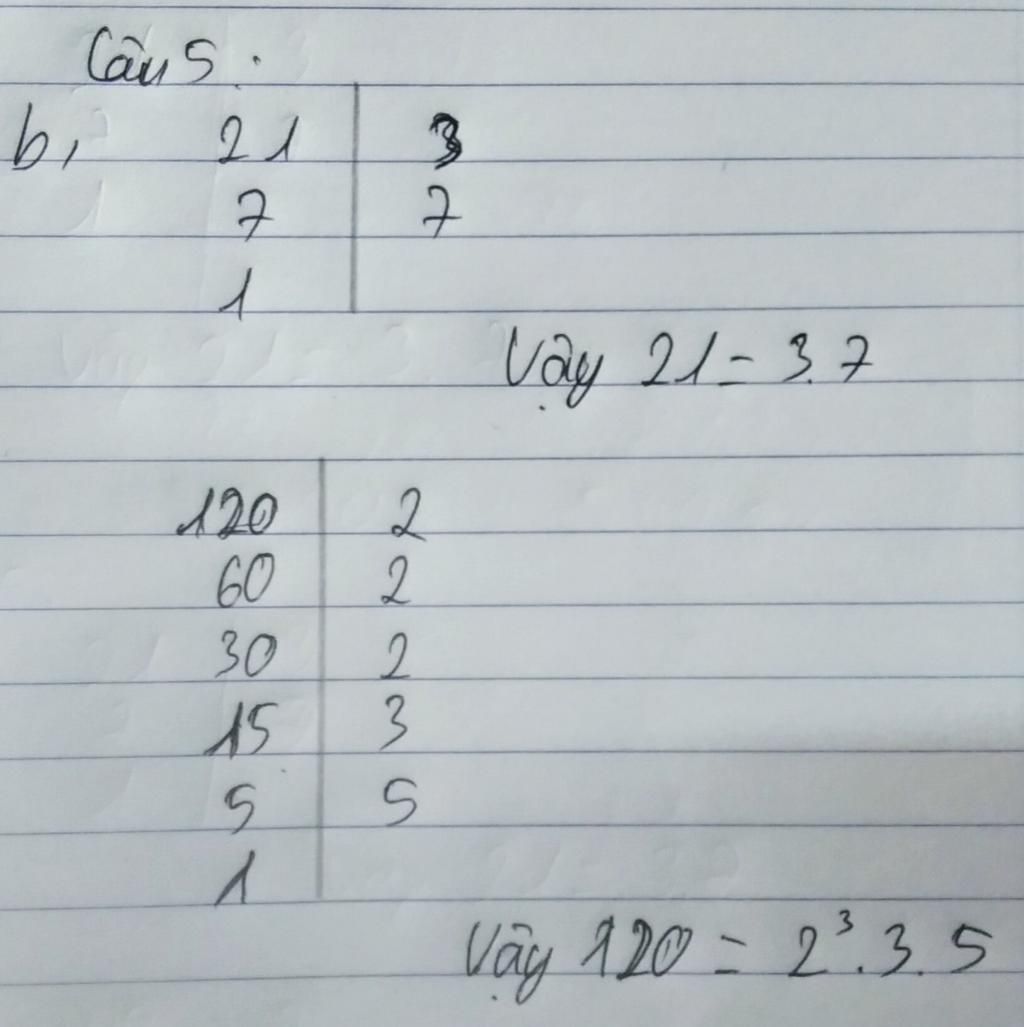 Câu 5.
b, 21 | 3
7 | 7
1 |
Vậy 21 = 3.7
120 | 2
60 | 2
30 | 2
15 | 3
5 | 5
1 |
Vậy 120 = 2³.3.5